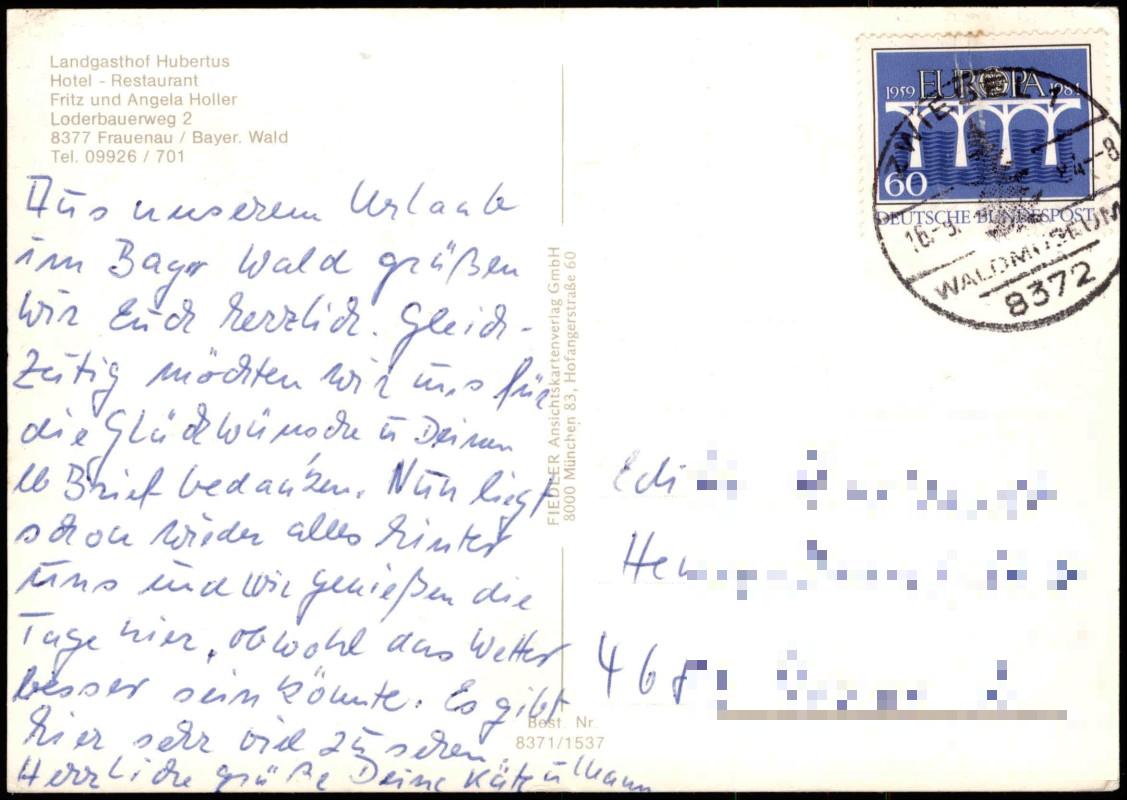 Landgasthof Hubertus
Hotel - Restaurant
Fritz und Angela Holler
Loderbauerweg 2
8377 Frauenau / Bayer. Wald
Tel. 09926 / 701
Aus unserem Urlaub
im Bayr Wald grüßen
wir Euch herzlich. Gleich-
zeitig möchten wir uns für
die Glückwünsche u Deinen
lb Brief bedanken. Nun liegt
schon wieder alles hinter
uns und wir genießen die
Tage hier, obwohl das Wetter
besser sein könnte. Es gibt
hier sehr viel zu sehen.
Herzliche Grüße Deine Käte u
FIEDLER Ansichtskartenverlag GmbH
8000 München 83, Hofangerstraße 60
Best. Nr.
8371/1537
1959 EUROPA 1984
60
DEUTSCHE BUNDESPOST
ZWIESEL 1
16.-9. 84.-8
WALDMUSEUM
8372